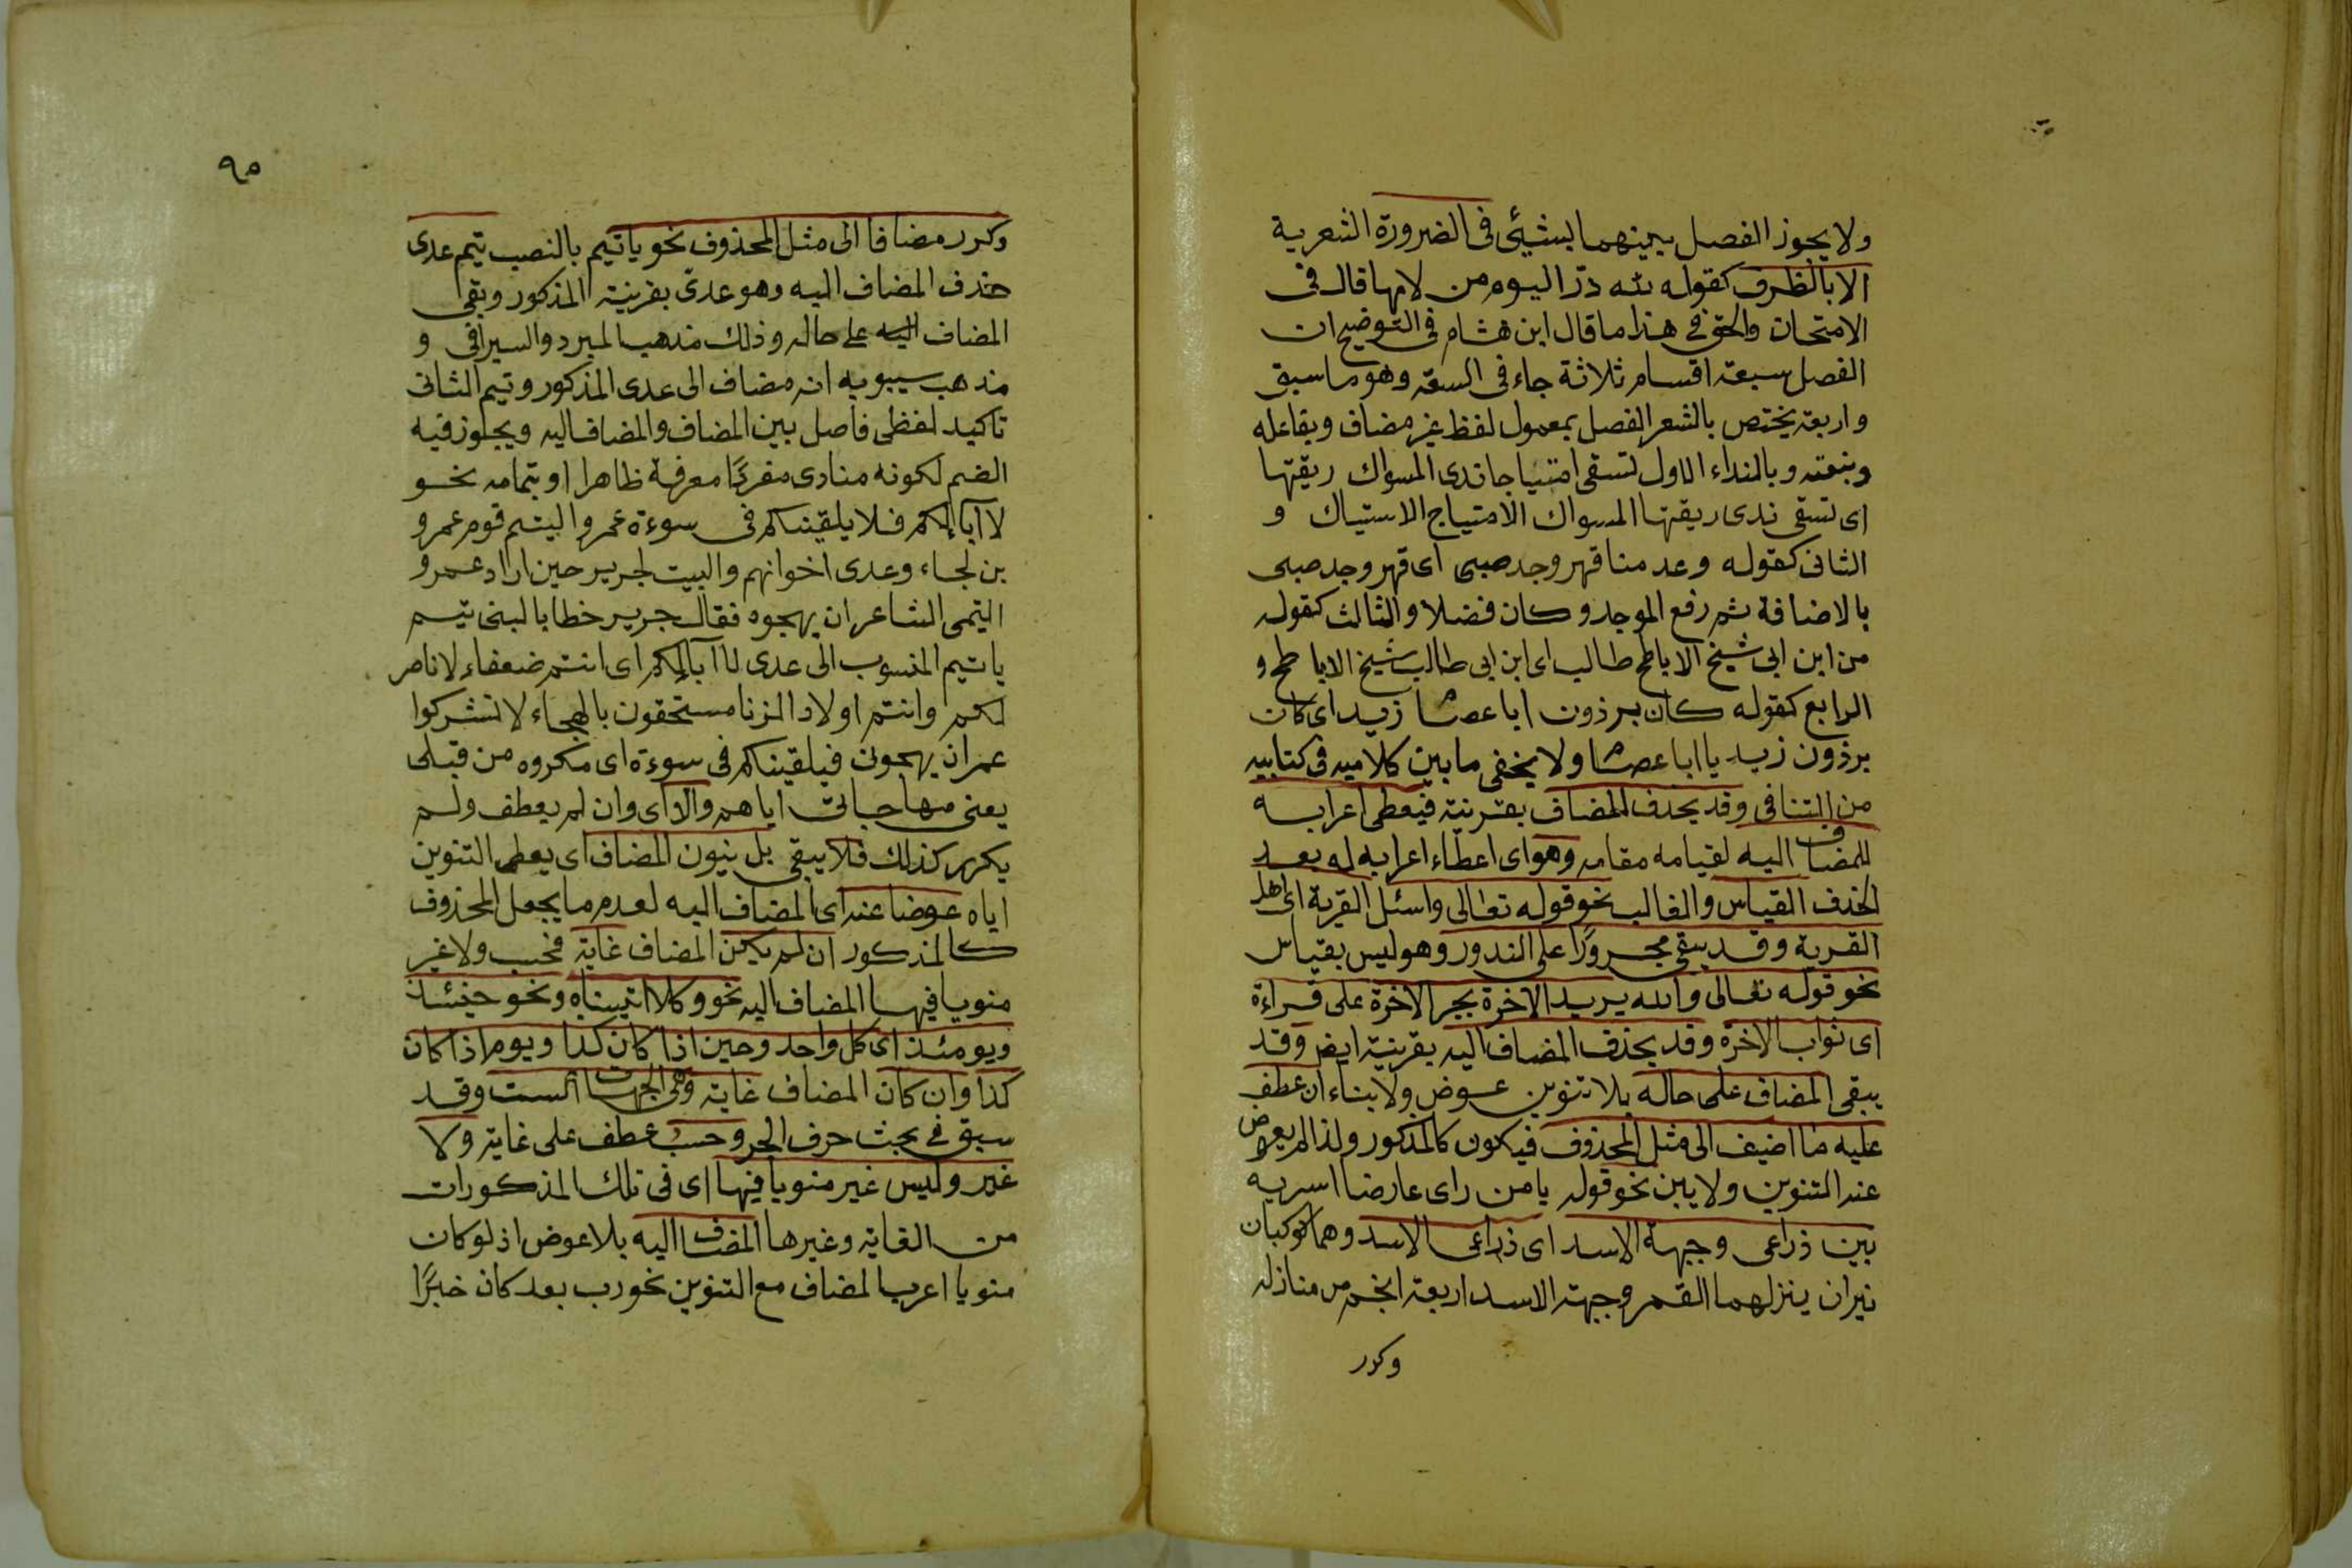 ولا يجوز الفصل بينهما بشيئ في الضرورة الشعرية
الا بالظرف كقوله لله درّ اليوم من لامها قال في
الامتحان والحق في هذا ما قال ابن هشام في التوضيح ان
الفصل سبعة اقسام ثلاثة جاء في السعة وهو ما سبق
واربعة يختص بالشعر الفصل بمعمول لفظ غير مضاف وبفاعله
وبنعته وبالنداء الاول لتسقى امتياجا ندى المسواك ريقتها
اى تسقى ندى ريقتها المسواك الامتياج الاستياك و
الثاني كقوله وعدمنا قهر وجد صبى اى قهر وجد صبى
بالاضافة ثم رفع الموجد وكان فضلا والثالث كقوله
من ابن ابى شيخ الاباطح طالب اى ابن ابى طالب شيخ الاباطح و
الرابع كقوله كان برذون ابا عصام زيد اى كان
برذون زيد يا ابا عصام ولا يخفى ما بين كلاميه في كتابيه
من التنافي وقد يحذف المضاف بقرينة فيعطى اعرابه
للمضاف اليه لقيامه مقامه وهو اى اعطاء اعرابه له بعد
الحذف القياس والغالب نحو قوله تعالى واسئل القرية اى اهل
القرية وقد يبقى مجرورًا على الندور وهو ليس بقياس
نحو قوله تعالى والله يريد الاخرة بجر الاخرة على قراءة
اى ثواب الاخرة وقد يحذف المضاف اليه بقرينة ايض وقد
يبقى المضاف على حاله بلا تنوين عوض ولا بناء ان عطف
عليه ما اضيف الى مثل المحذوف فيكون كالمذكور ولذا لم يعوض
عنه التنوين ولا يبن نحو قوله يا من راى عارضا اسر به
بين ذراعى وجبهة الاسد اى ذراعى الاسد وهما كوكبان
نيران ينزلهما القمر وجبهة الاسد اربعة انجم من منازله
وكرر
٩٥
وكرر مضافا الى مثل المحذوف نحو يا تيم بالنصب تيم عدى
حذف المضاف اليه وهو عدى بقرينة المذكور وبقى
المضاف اليه على حاله وذلك مذهب المبرد والسيرافي و
مذهب سيبويه انه مضاف الى عدى المذكور وتيم الثانى
تاكيد لفظى فاصل بين المضاف والمضاف اليه ويجوز فيه
الضم لكونه منادى مفردًا معرفة ظاهرا او بتمامه نحو
لا ابا لكم فلا يلقينكم في سوءة عمر والتيم قوم عمرو
بن لجاء وعدى اخوانهم والبيت لجرير حين اراد عمرو
التيمى الشاعر ان يهجوه فقال جرير خطابا لبنى تيم
يا تيم المنسوب الى عدى لا ابا لكم اى انتم ضعفاء لا ناصر
لكم وانتم اولاد الزنا مستحقون بالهجاء لا تشركوا
عمر ان يهجون فيلقينكم في سوءة اى مكروه من قبلى
يعنى مهاجاتى اياهم والا اى وان لم يعطف ولم
يكرر كذلك فلا يبقى بل ينون المضاف اى يعطى التنوين
اياه عوضا عنه اى المضاف اليه لعدم ما يجعل المحذوف
كالمذكور ان لم يكن المضاف غاية فحسب ولا غير
منويا فيها المضاف اليه نحو وكلا اتيناه ونحو حينئذ
ويومئذ اى كل واحد وحين اذا كان كذا ويوم اذا كان
كذا وان كان المضاف غاية وهى الجهات الست وقد
سبق في بحث حرف الجر وحسب عطف على غاية ولا
غير وليس غير منويا فيها اى في تلك المذكورات
من الغاية وغيرها المضاف اليه بلا عوض اذ لو كان
منويا اعرب المضاف مع التنوين نحو رب بعد كان خيرًا